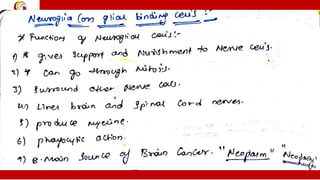 Neuroglia (or glial binding cells :-
* Function of Neuroglial cells:-
1) * gives Support and Nurishment to Nerve cells.
2) * can go through Mitosis.
3) Surround other Nerve cells.
4) Lines brain and Spinal Cord nerves.
5) produce myeline.
6) phagocytic action.
7) 8. Main Source of Brain Cancer. "Neoplasm"